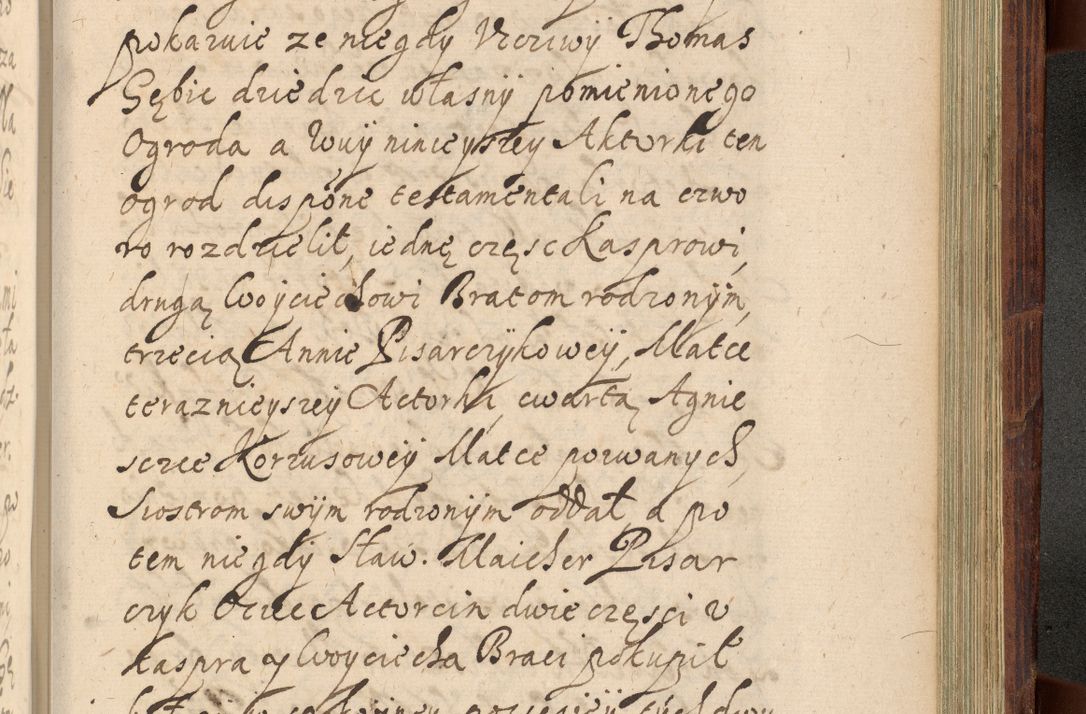 pokazuie ze niegdy Vczciwÿ Thomas
Gębic dziedzic własnÿ pomienionego
Ogroda a Wuÿ ninieyszey Aktorki ten
ogrod dispone testamentali na czwo
ro rozdzielił, iednę częsc Kasprowi,
drugą Woyciechowi Bratom rodzonÿm,
trzecią Annie Pisarczÿkoweÿ, Matce
teraznieyszeÿ Actorki, cwartą Agnie
sczce Korzusoweÿ Matce pozwanych,
Siostrom swÿm rodzonÿm oddał, a po
tem niegdÿ Sław. Maicher Pisar
czyk Ociec Actorcin dwie częsci v
Kaspra y Woyciecha Braci pokupił